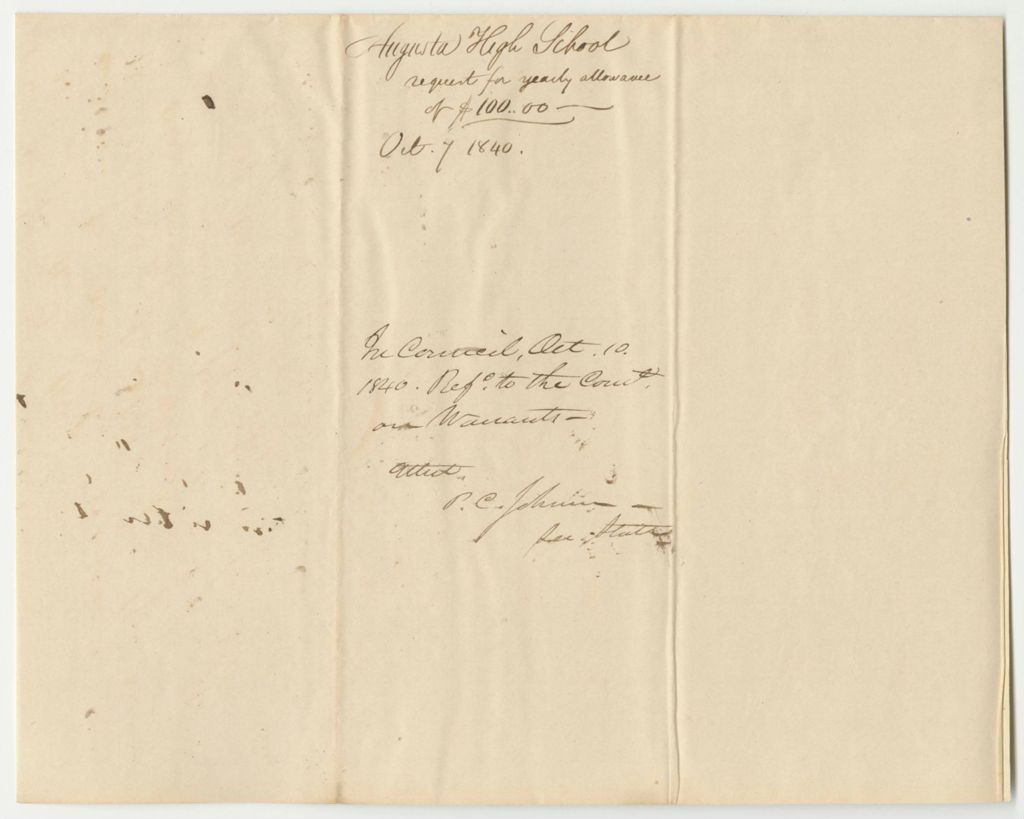 Augusta High School
request for yearly allowance
of $100..00 —
Oct. 7 1840.
In Council, Oct. 10.
1840. Refd. to the Comt.
on Warrants —
Attest.
P. C. Johnson —
Sec. State